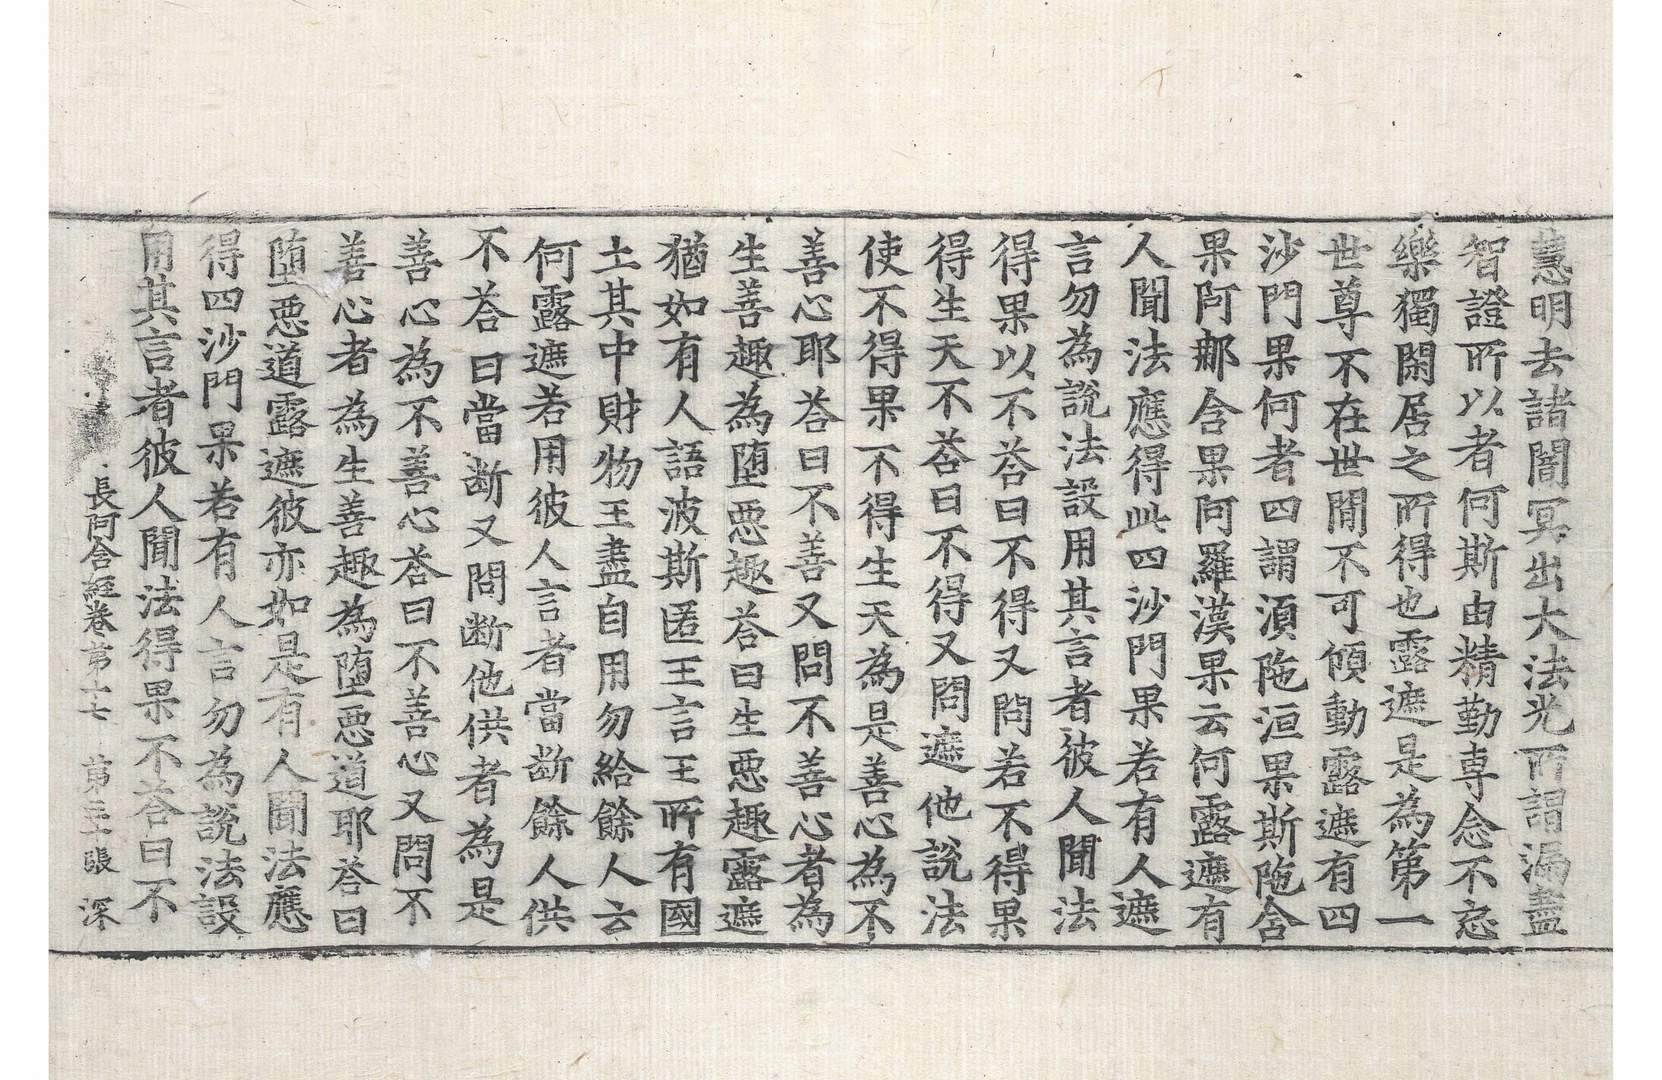 慧明去諸闇冥出大法光所謂漏盡
智證所以者何斯由精勤專念不忘
樂獨閑居之所得也露遮是為第一
世尊不在世間不可傾動露遮有四
沙門果何者四謂湏陁洹果斯陁含
果阿那含果阿羅漢果云何露遮有
人聞法應得此四沙門果若有人遮
言勿為說法設用其言者彼人聞法
得果以不荅曰不得又問若不得果
得生天不荅曰不得又問遮他說法
使不得果不得生天為是善心為不
善心耶荅曰不善又問不善心者為
生善趣為墮惡趣荅曰生惡趣露遮
猶如有人語波斯匿王言王所有國
土其中財物王盡自用勿給餘人云
何露遮若用彼人言者當斷餘人供
不荅曰當断又問断他供者為是
善心為不善心荅曰不善心又問不
善心者為生善趣為墮惡道耶荅曰
墮惡道露遮彼亦如是有人聞法應
得四沙門果若有人言勿為說法設
用其言者彼人聞法得果不荅曰不
長阿含經卷第十七　第三十張　深